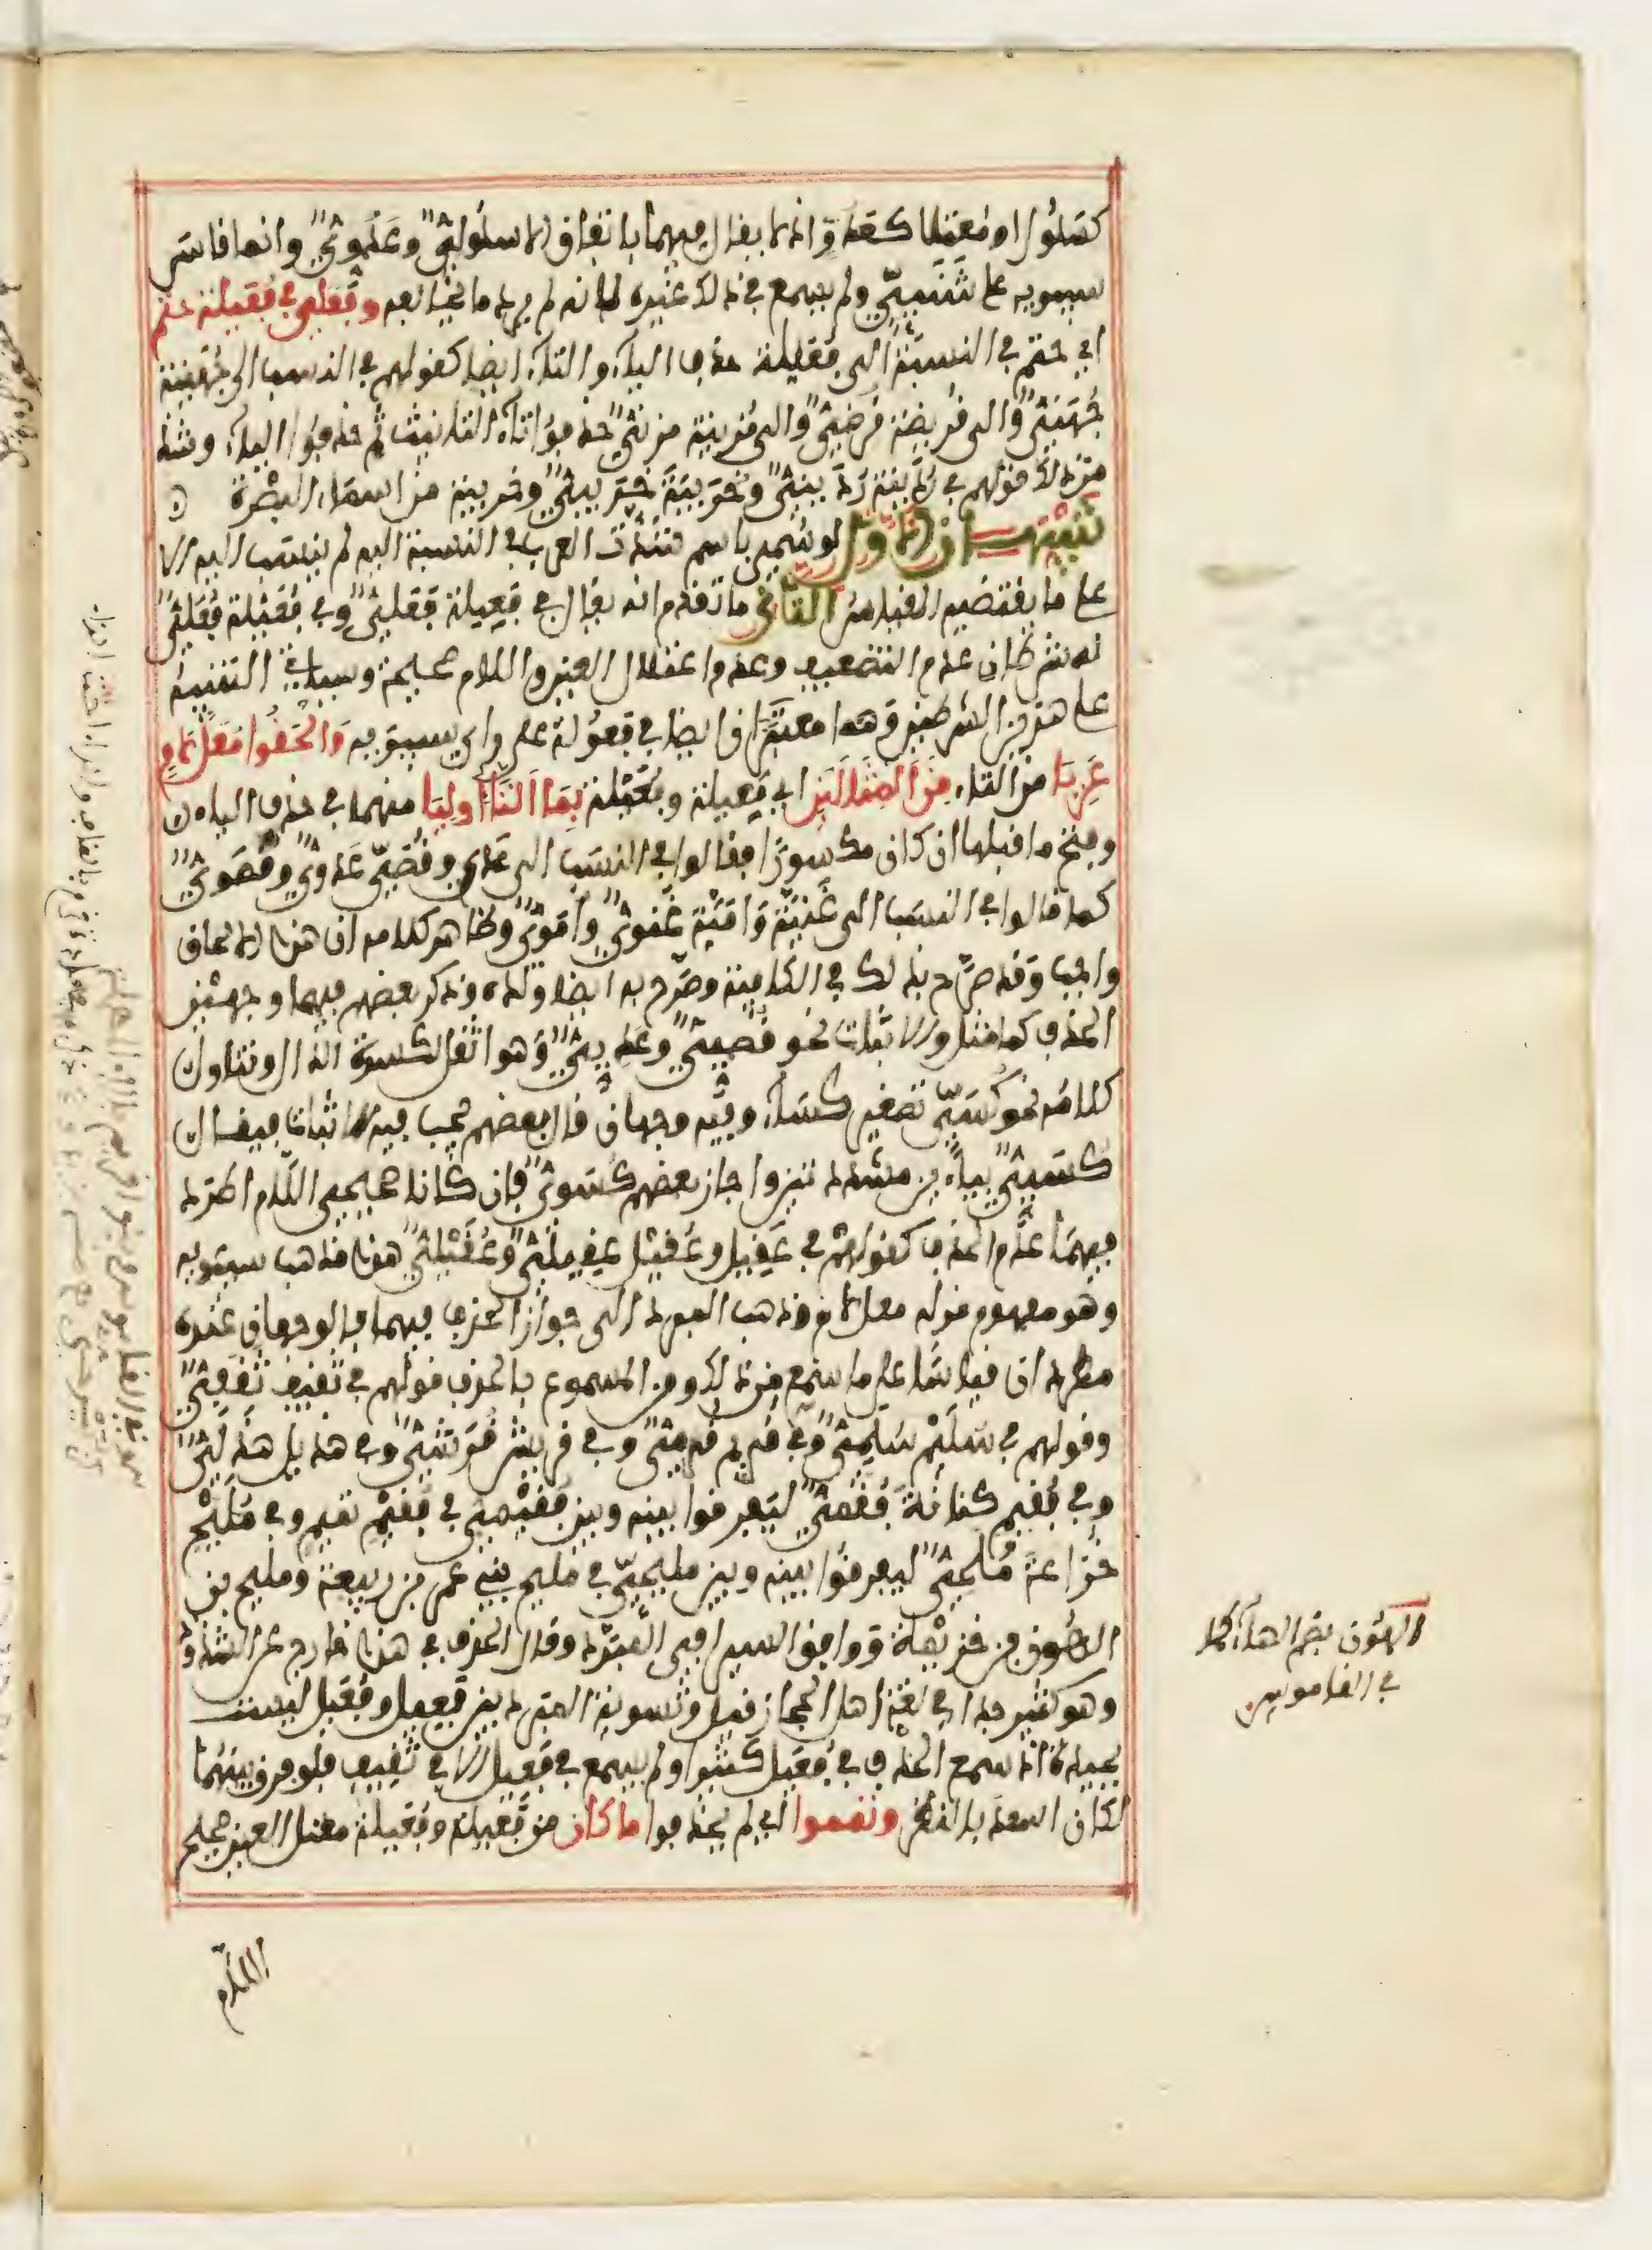 كسلول او معتلا كعدوة اذ لا يقال فيهما باتفاق الا سلولي وعدوي وانما قاس
سيبويه على شنئي ولم يسمع في ذلك غيره لانه لم يرد ما يخالفه وفعلي في فعيلة حتم
اي حتم في النسبة الى فعيلة حذف الياء والتاء ايضا كقولهم في النسب الى جهينة
جهني والى قريظة قرظي والى مزينة مزني حذفوا تاء التانيث ثم حذفوا الياء وشذ
من ذلك قولهم في ردينة رديني وخريبة خريبي وخريبة من اسماء البصرة
تنبيهان الاول لو سمي باسم شذت العرب في النسبة اليه لم ينسب اليه الا
على ما يقتضيه القياس الثاني ما تقدم انه يقال في فعيلة فعلي وفي فعيلة فعلي
له شرطان عدم التضعيف وعدم اعتلال العين واللام صحيحة وسياتي التنبيه
على هذين الشرطين وهما معتبران ايضا في فعولة على راي سيبويه والحقوا معل لام
عريا من التاء من المثالين اي فعيلة وفعيلة بما التا اوليا منهما في حذف الياء
وفتح ما قبلها ان كان مكسورا فقالوا في النسب الى عدي وقصي عدوي وقصوي
كما قالوا في النسب الى غنية وامية غنوي واموي وظاهر كلامه ان هذا الالحاق
واجب وقد صرح بذلك في الكافية وصرح به ايضا ولده وذكر بعضهم فيهما وجهين
الحذف كما مثل والاثبات نحو قصيي وعديي وهو اثقل لكسرة الدال وتناول
كلامه نحو كسي تصغير كساء وفيه وجهان قال بعضهم يجب فيه الاثبات فيقال
كسيي بياءين مشددتين واجاز بعضهم كسوي فان كانا صحيحي اللام اطرد
فيهما عدم الحذف كقولهم في عقيل وعقيل عقيلي وعقيلي هذا مذهب سيبويه
وهو مفهوم قوله معل لام وذهب المبرد الى جواز الحذف فيهما فالوجهان عنده
مطردان قياسا على ما سمع من ذلك ومن المسموع بالحذف قولهم في ثقيف ثقفي
وقولهم في سليم سلمي وفي قريم قرمي وفي قريش قرشي وفي هذيل هذلي
وفي فقيم كنانة فقمي ليفرقوا بينه وبين فقيمي في فقيم تميم وفي مليح
خزاعة ملحي ليفرقوا بينه وبين مليحي في مليح بني عمرو بن ربيعة ومليح بن
الهون بن خزيمة ووافق السيرافي المبرد وقال الحذف في هذا خارج عن الشذوذ
وهو كثير جدا في لغة اهل الحجاز قيل وتسوية المبرد بين فعيل وفعيل ليست
بجيدة اذ سمع الحذف في فعيل كثيرا ولم يسمع في فعيل الا في ثقيف فلو فرق بينهما
لكان اسعد بالنظر وتمموا اي لم يحذفوا ما كان من فعيلة وفعيلة معتل العين صحيح
اللام
الهون بضم الهاء كما
في القاموس